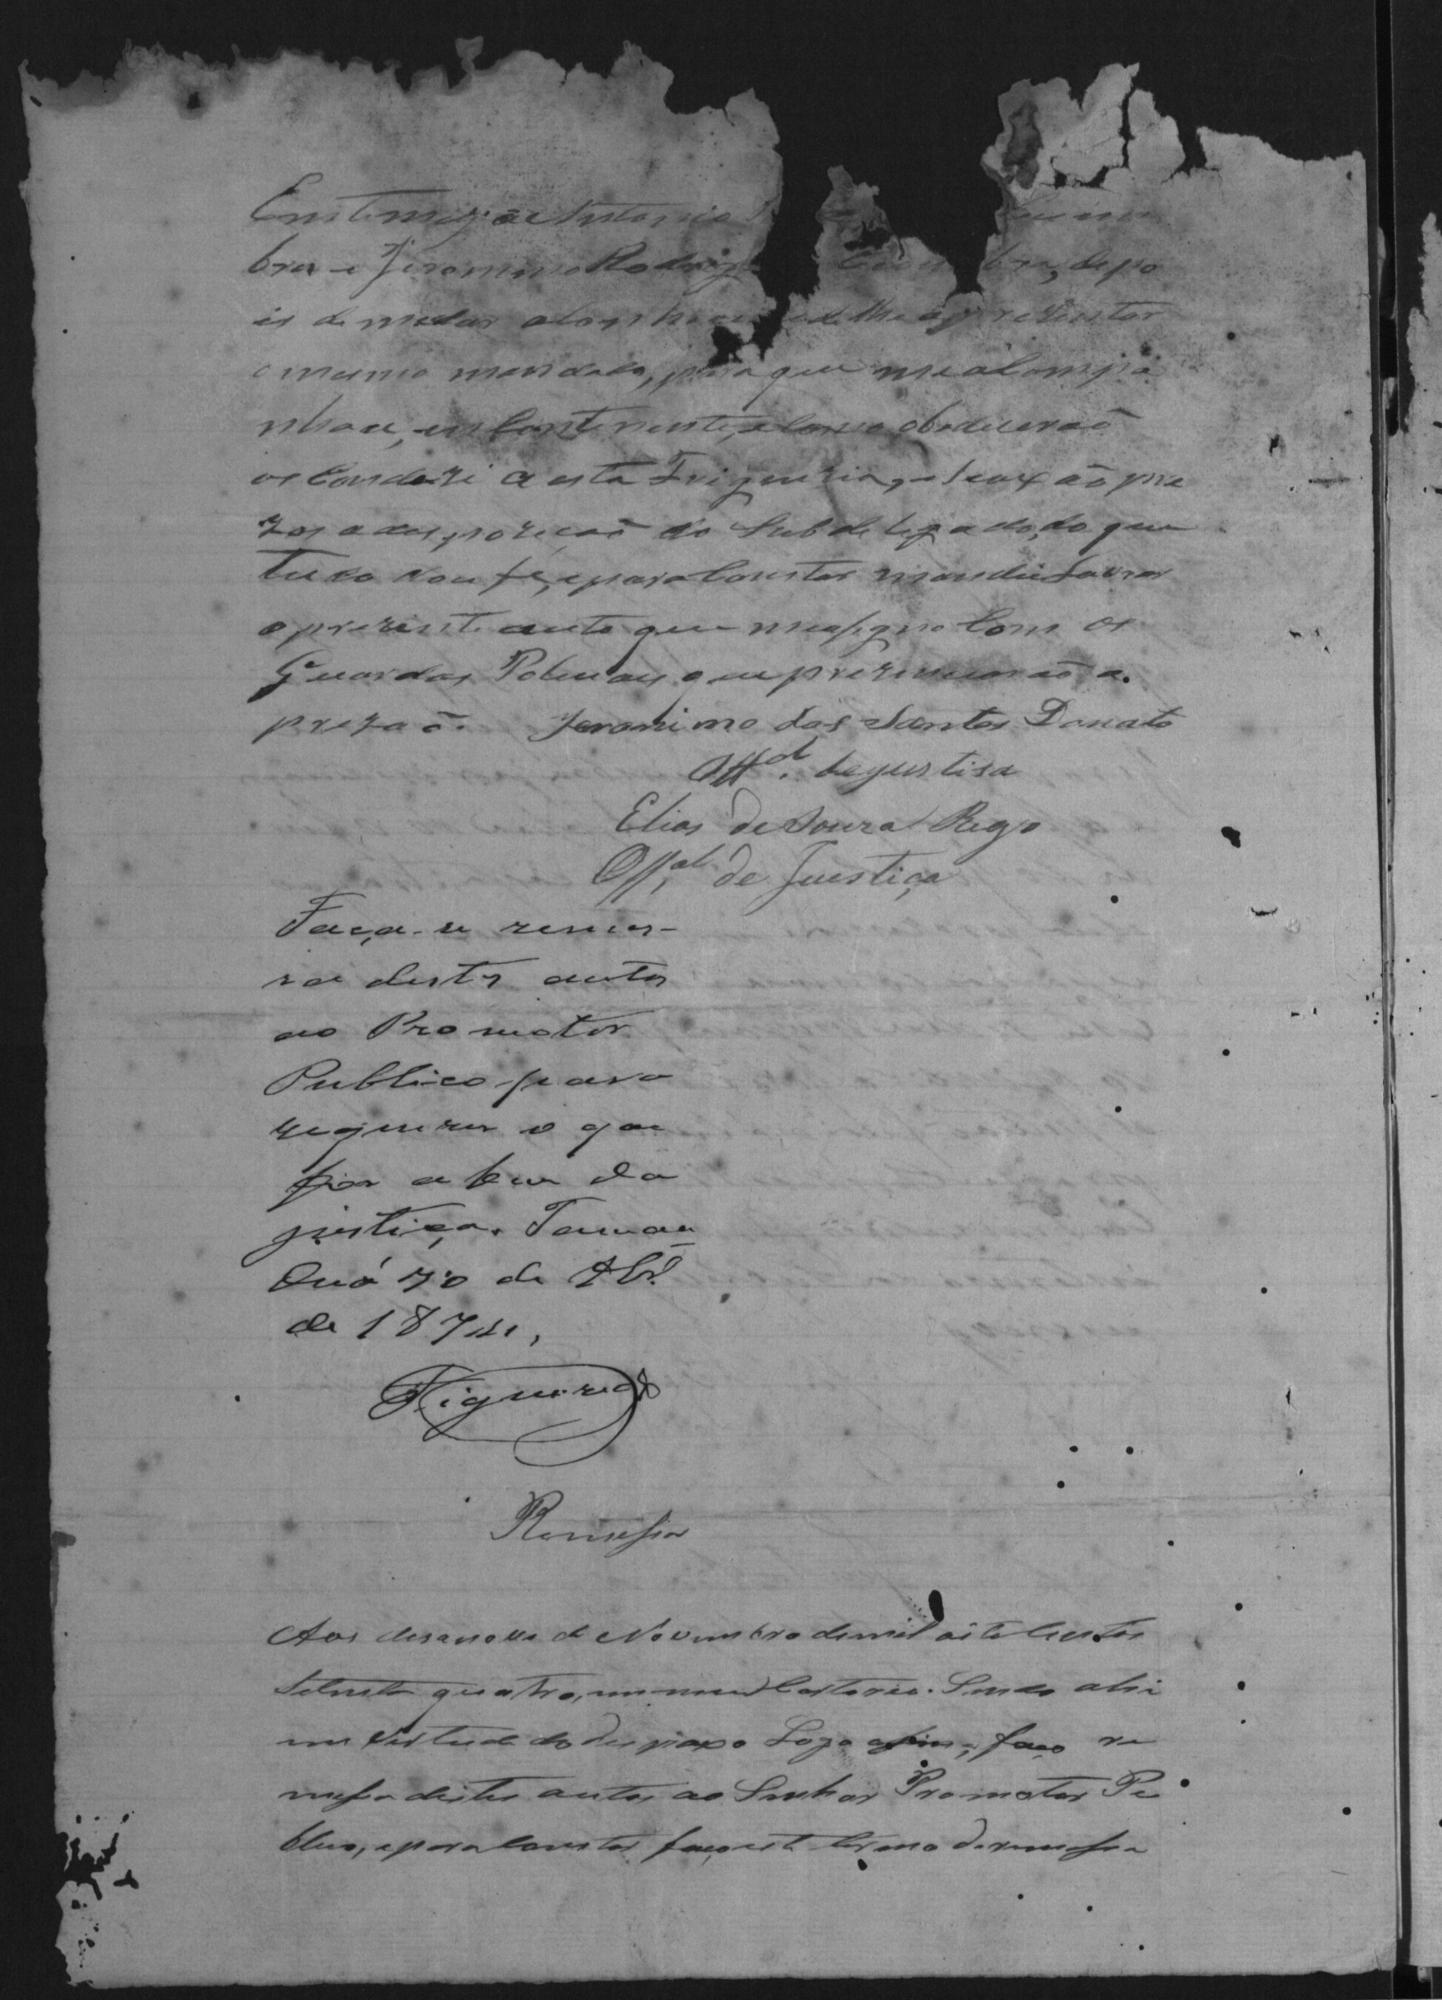 Antonio
bra e Jeronimo Rodrig bra, depo
is de os aprezentar
o mesmo mandado, para que me acompa
nhace, in continente, e como obdecerão
os Conduzi a esta Freiguezia, e e pre
zos a do Subdelegado, do que
tudo dou fé, e para Constar mandei lavrar
o prezente auto que me assigno Com os
Guardas Poliçiais que prezenciarão a
prezaõ. Jeronimo dos Santos Donato
Offal. de justisa
Elias de Souza Rego
Offal. de Justiça
Faça-se remes-
sa destes autos
ao Promotor
Publico para
requerer o que
for a bem da
justiça. Taman
duá 20 de Abl.
de 1874.
Figueredo
Remessa
Aos desanove de Novembro de mil oito Centos
Setenta quatro, em meu Cartorio. Sendo ahi
em virtude do despaxo Logo asima, faço re
messa destes autos ao Senhor Promotor Pu
blico, e para Constar faço este termo de remessa